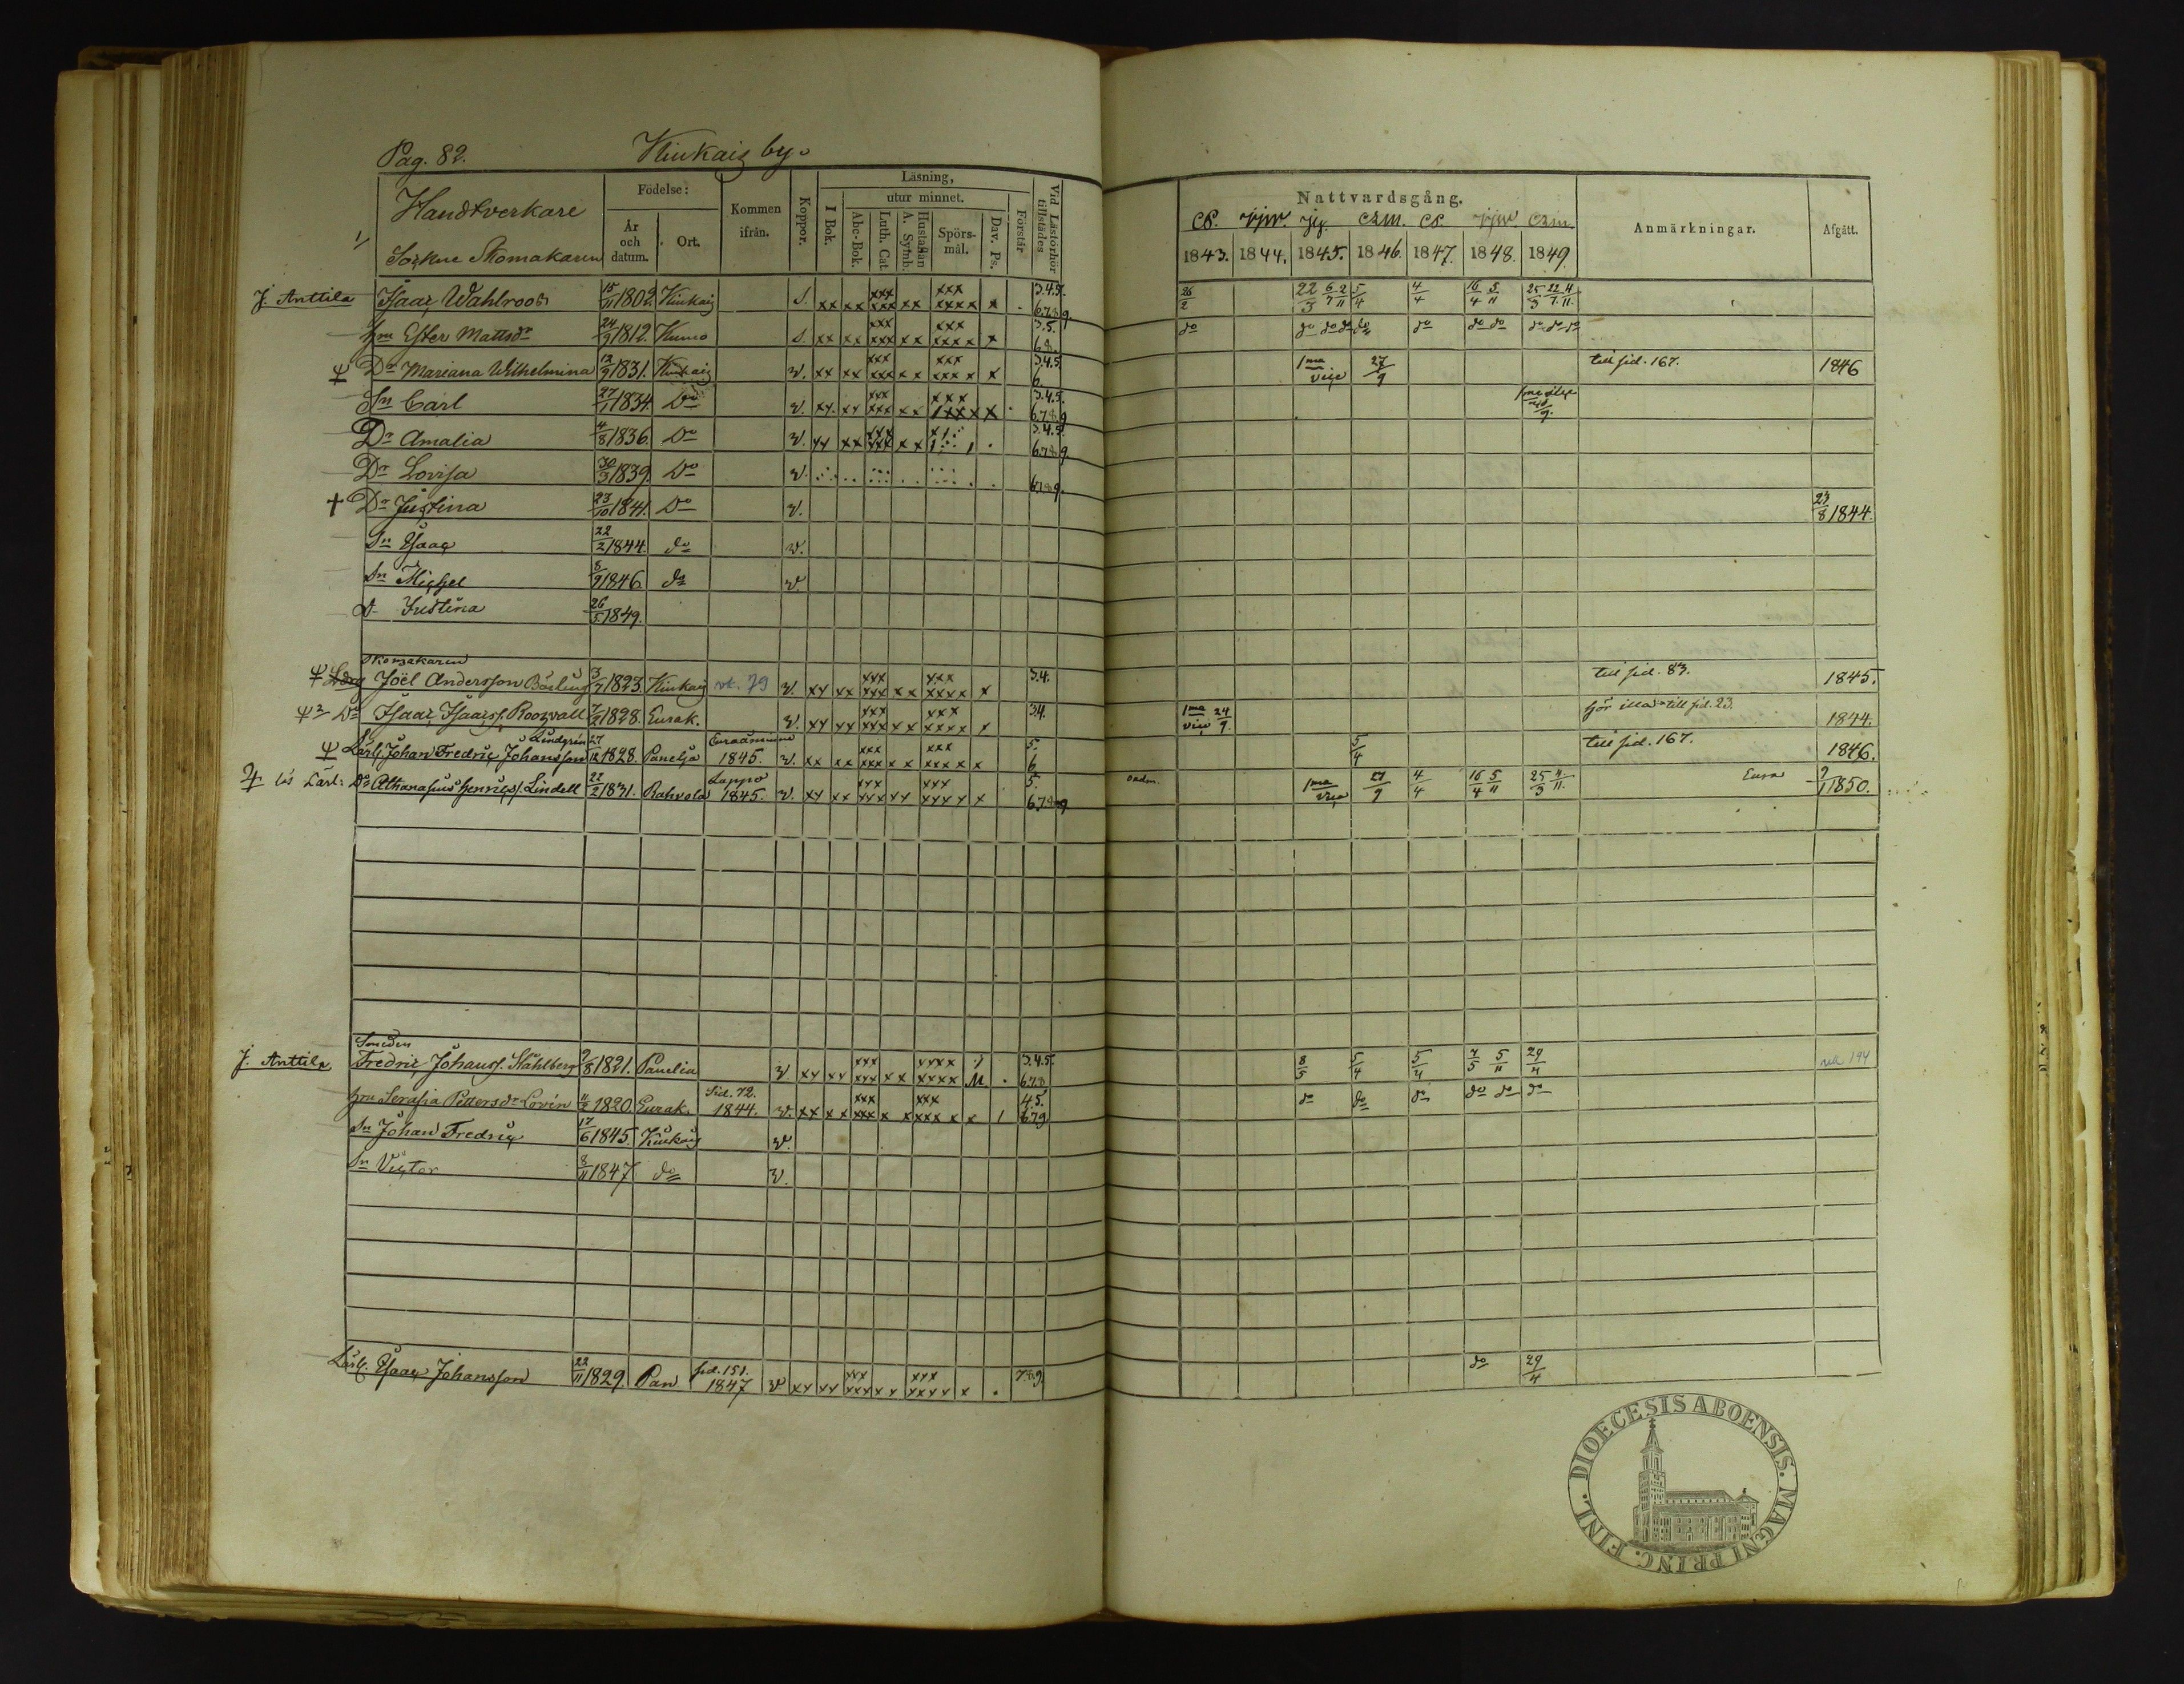 Pag. 82. Kiukais by.
Handtverkare
Födelse:
År och datum.
Ort.
Kommen ifrån.
Koppor.
Läsning,
I Bok.
utur minnet.
Abc-Bok.
Luth. Cat.
Hustaflan A. Symb.
Spörsmål.
Dav. Ps.
Förstår
Vid Läsförhör tillstädes
Nattvardsgång.
1843. 1844. 1845. 1846. 1847. 1848. 1849.
Anmärkningar.
Afgått.
Sockne Skomakaren
J. Anttila Isaac Wahlroos 15/11 1802. Kiukais S. xx xx xxx xxx xx xxx xxxx x 3.4.5. 6.7.8.9 26/2 22/3 6/7 2/11 5/4 4/4 16/4 5/11 25/3 22/7 4/11.
hru Ester Mattsdr 24/9 1812. Kumo S. xx xx xxx xxx xx xxx xxxx x 3.5. 6.8. do do do do do do do do do do do
Dr Mariana Wilhelmina 12/9 1831. Kiukais v. xx xx xxx xxx xx xxx xxxx x 3.4.5. 6. 1ma vice 27/9 till sid. 167. 1846
Sn Carl 27/1 1834. Do v. xx xx xxx xxx xx xxx 3.4.5. 6.7.8.9
Dr Amalia 4/8 1836. Do v. xx xx xxx xxx xx 3.4.5. 6.7.8.9.
Dr Lovisa 30/3 1839. Do v. 6.7.8.9.
† Dr Justina 23/10 1841. Do v. 23/8 1844.
Sn Isaac 22/2 1844. do v.
Sn Michel 5/9 1846. do v.
D. Justina 26/5 1849.
Skomakaren
Joël Andersson Bärling 3/7 1823. Kiukais vt. 79 v. xx xx xxx xxx xx xxx xxxx x 3.4. till sid. 83. 1845.
Do Isaac Isaacss. Roosvall 7/2 1828. Eurak. v. xx xx xxx xxx xx xxx xxxx x 3.4. 1ma vice 24/9 hör illa till sid. 23. 1844.
Lindgrén
Lärl. Johan Fredric Johansson 27/12 1828. Panelia Euraåminne 1845. v. xx xx xxx xxx xx xxx xxxx x 5. 6 5/4 till sid. 167. 1846.
Lärl: Do Athanasius Henricss. Lindell 22/2 1831. Rahvola Lappo 1845. v. xx xx xxx xxx xx xxx xxxx x 5. 6.7.8.9 oadm. 1ma vice 27/9 4/4 16/4 5/11 25/3 4/11. Eura 9/1 1850.
Smeden
J. Anttila Fredric Johanss. Ståhlberg 9/8 1821. Panelia v xx xx xxx xxx xx xxxx xxxx 3.4.5. 6.7.8 8/5 5/4 5/4 7/5 5/11 29/4 194
hru Serafia Pettersdr Lovén 11/2 1820. Eurak. Sid. 72. 1844. v. xx xx xxx xxx x xxx xxxx x 1 4.5. 6.7.9 do do do do do do
Sn Johan Fredric 17/6 1845. Kiukais v.
Sn Victor 8/11 1847 do v.
Lärl. Isaac Johansson 22/11 1829. Pan sid. 151. 1847 v xx xx xxx xxx xx xxx xxxx x . 7.8.9. do 29/4
FINL. DIOECESIS ABOENSIS. MAGNI PRINC.